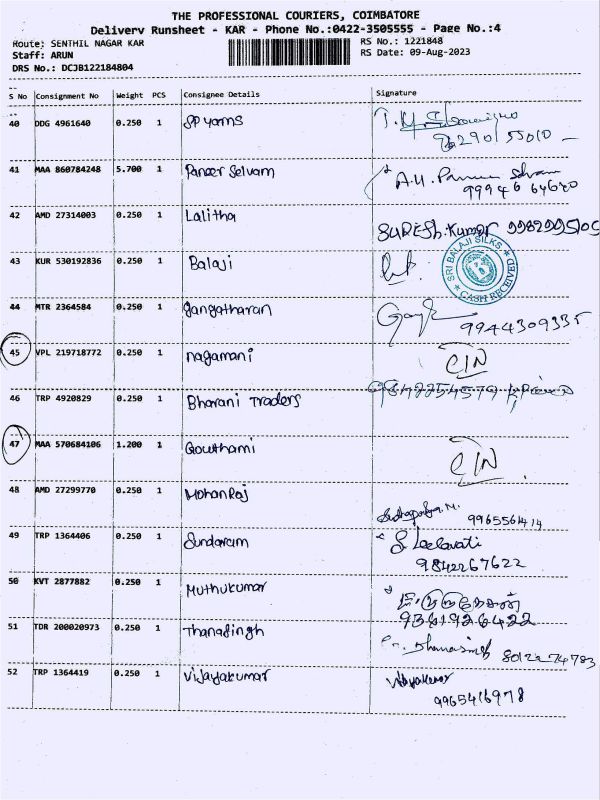 THE PROFESSIONAL COURIERS, COIMBATORE
Delivery Runsheet - KAR - Phone No.:0422-3505555 - Page No.:4
Route: SENTHIL NAGAR KAR RS No.: 1221848
Staff: ARUN RS Date: 09-Aug-2023
DRS No.: DCJB122184804
S No Consignment No Weight PCS Consignee Details Signature
40 DDG 4961640 0.250 1 SP yarns
41 MAA 860784248 5.700 1 Paneer Selvam A.U.
99946 64640
42 AMD 27314003 0.250 1 Lalitha SURESh.Kumar
43 KUR 530192836 0.250 1 Balaji SRI BALAJI SILKS CASH RECEIVED
44 MTR 2364584 0.250 1 Gangatharan
9944309335
45 VPL 219718772 0.250 1 nagamani CIN
46 TRP 4920829 0.250 1 Bharani Traders
47 MAA 570684106 1.200 1 Gowthami CIN
48 AMD 27299770 0.250 1 MohanRaj
9965561414
49 TRP 1364406 0.250 1 Sundaram S Leelavati
9842267622
50 KVT 2877882 0.250 1 Muthukumar
9361926422
51 TDR 200020973 0.250 1 Thanasingh
8012274783
52 TRP 1364419 0.250 1 Vijayakumar Vijayakumar
9965416978